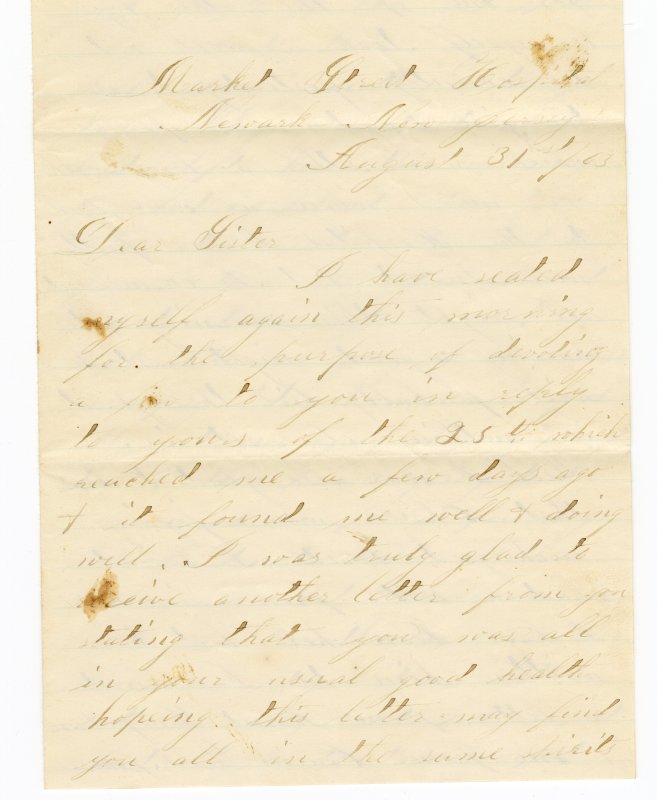 Market Street Hospital
Newark New Jersey
August 31st/63
Dear Sister
I have seated
myself again this morning
for the purpose of devoting
a few to you in reply
to yours of the 25th which
reached me a few days ago
& it found me well & doing
well. I was truly glad to
receive another letter from you
stating that you was all
in your usual good health
hoping this letter may find
you all in the same spirits